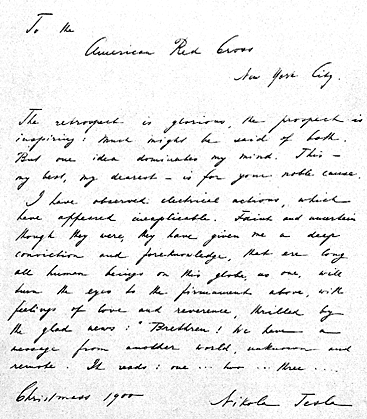 To the
American Red Cross
New York City.
The retrospect is glorious, the prospect is
inspiring: Much might be said of both.
But one idea dominates my mind. This —
my best, my dearest — is for your noble cause.
I have observed electrical actions, which
have appeared inexplicable. Faint and uncertain
though they were, they have given me a deep
conviction and foreknowledge, that ere long
all human beings on this globe, as one, will
turn the eyes to the firmament above, with
feelings of love and reverence, thrilled by
the glad news: "Brethren! We have a
message from another world, unknown and
remote. It reads: one ... two ... three ...."
Christmass 1900
Nikola Tesla